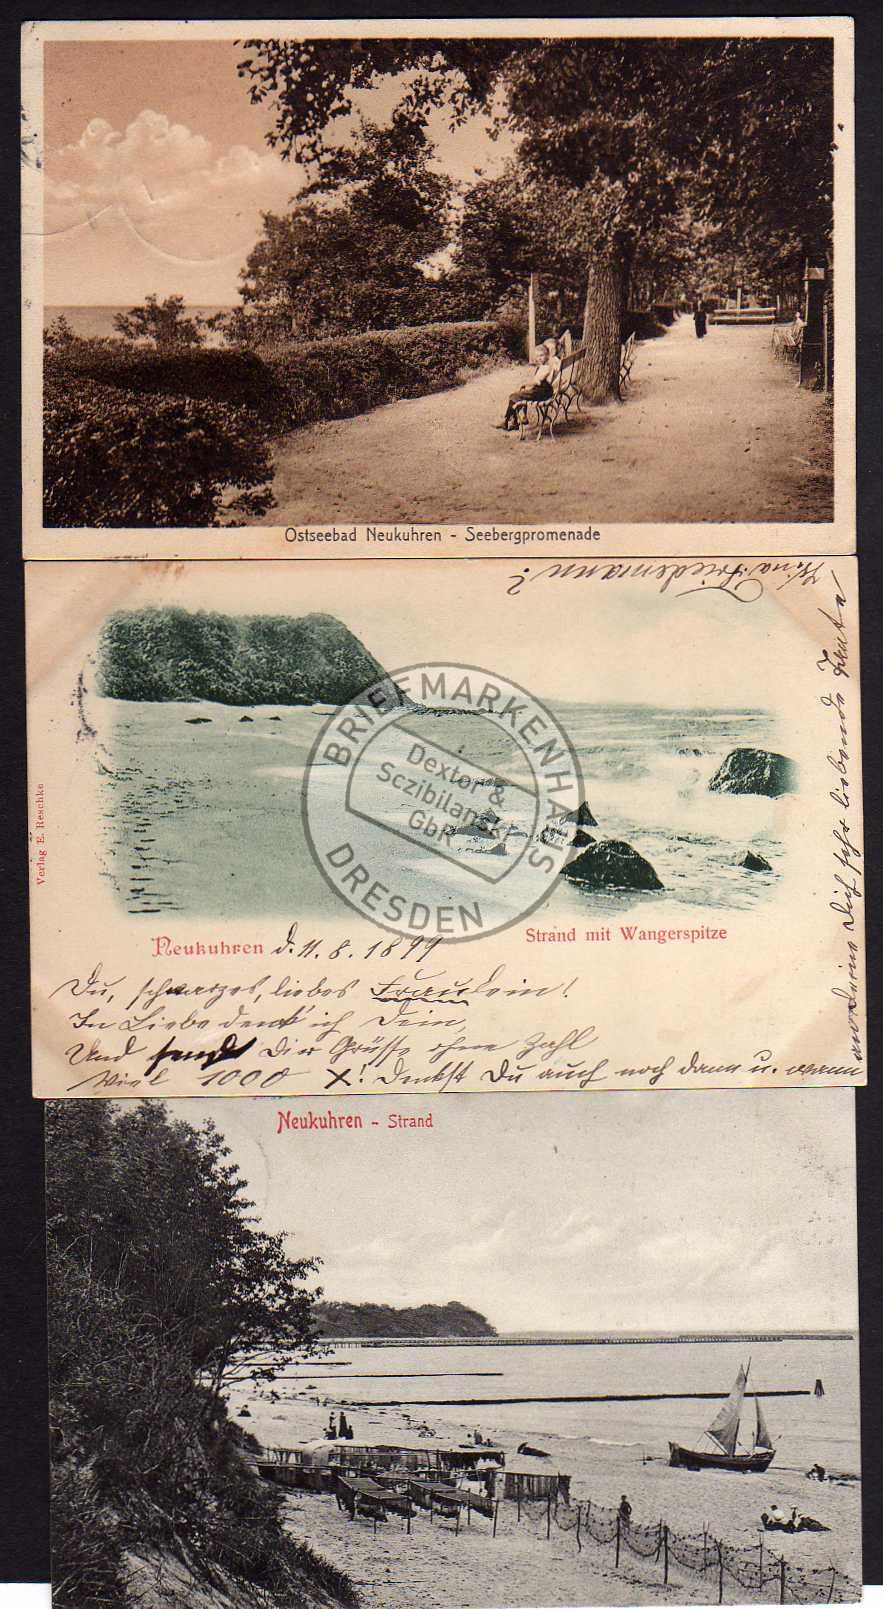 Ostseebad Neukuhren - Seebergpromenade
Friedemann?
Verlag E. Reschke
BRIEFMARKENHAUS
Dextor &
Sczibilanski
GbR
DRESDEN
Neukuhren d. 11. 8. 1899
Strand mit Wangerspitze
Du, schwarzes, liebes Fraulein!
In Liebe denk' ich Dein,
Und sende Dir Grüsse ohne Zahl
Viel 1000 X! Denkst Du auch noch dann u. wann
an Deine Dich sehr liebende Tante
Neukuhren - Strand